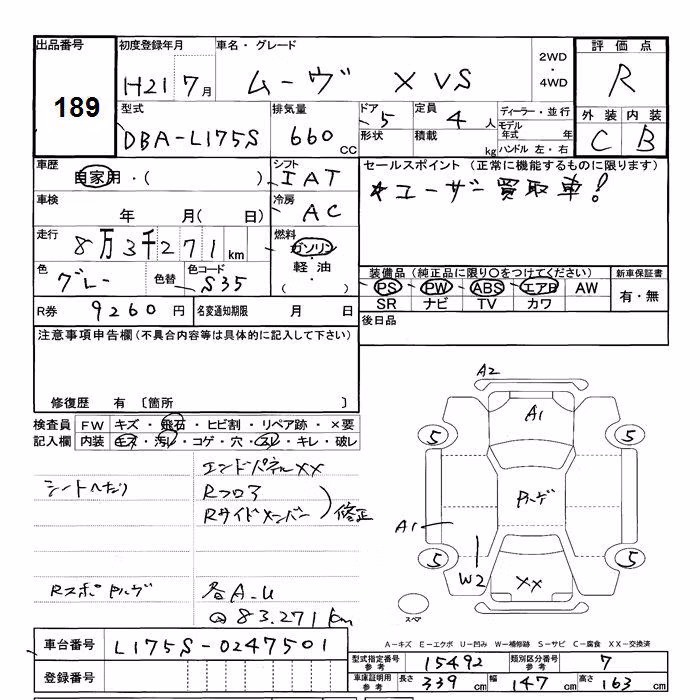 出品番号 初度登録年月 車名・グレード 2WD・4WD 評価点
189 H21 7月 ムーヴ X VS R
型式 排気量 ドア 定員 ディーラー・並行 外装 内装
DBA-L175S 660cc 5 4人 モデル年式 年 C B
形状 積載 kg ハンドル 左・右
車歴 自家用・( ) シフト IAT セールスポイント (正常に機能するものに限ります)
車検 年 月( 日) 冷房 AC ★ユーザー買取車!
走行 8万3千271km 燃料 ガソリン・軽油・( )
色 グレー 色替 色コード S35 装備品 (純正品に限り○をつけてください) 新車保証書
PS PW ABS エアB AW 有・無
SR ナビ TV カワ
R券 9260円 名変通知期限 月 日 後日品
注意事項申告欄 (不具合内容等は具体的に記入して下さい)
修復歴 有 〔箇所 〕
検査員 FW キズ・飛石・ヒビ割・リペア跡・×要
記入欄 内装 キズ・汚れ・コゲ・穴・スレ・キレ・破レ
エンドパネルXX
シートへたり Rフロア
Rサイドメンバー 修正
Rスポ 各A-U
83.271km
A2
A1
5 5
A1
W2 XX
5 5
スペア
A-キズ E-エクボ U-凹み W-補修跡 S-サビ C-腐食 XX-交換済
車台番号 L175S-0247501
登録番号
型式指定番号 参考 15492 類別区分番号 参考 7
車庫証明用 参考 長さ 339cm 幅 147cm 高さ 163cm